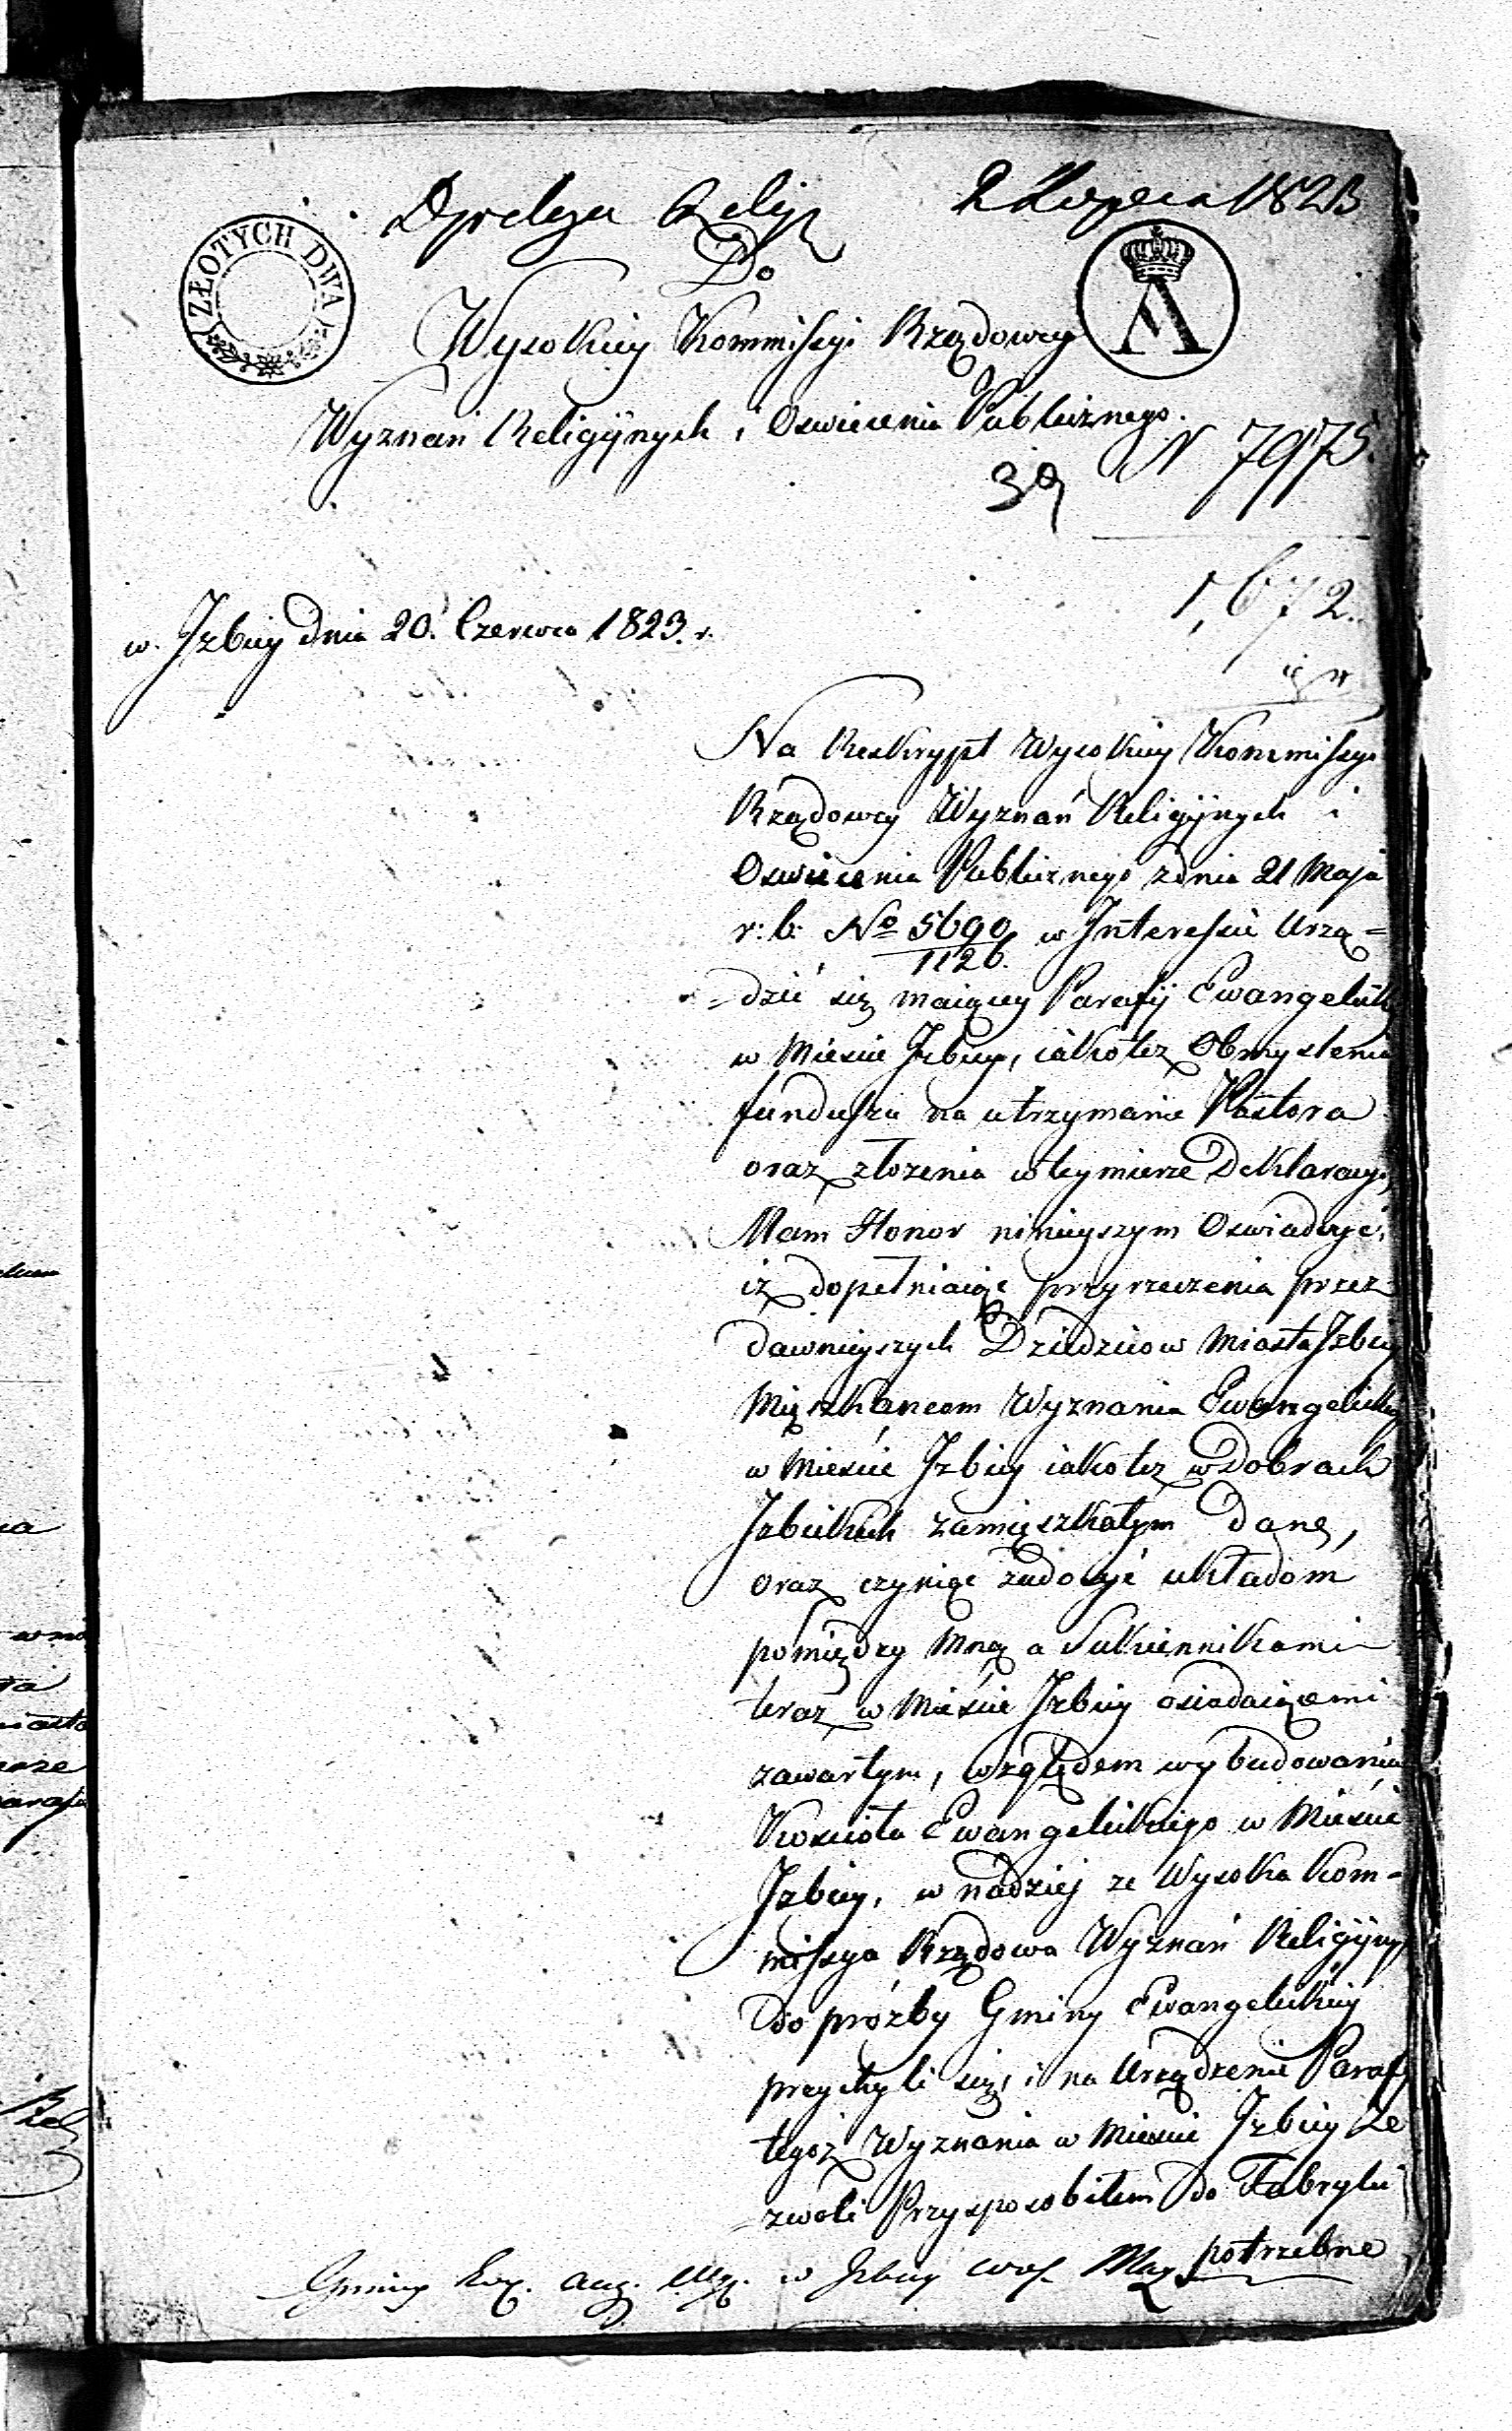 2 Lipca 1823
ZŁOTYCH DWA
Do
Wysokiey Kommissyi Rządowey
Wyznań Religiynych i Oswiecenia Publicznego.
39 N 7975.
1,672.
w. Izbicy dnia 20. Czerwca 1823. r.
Na Reskrypt Wysokiey Kommissyi
Rządowey Wyznań Religiynych i
Oswiecenia Publicznego z dnia 21 Maja
r: b: No 5690/1126. w Interessie Urzą=
=dzić się maiącey Parafij Ewangelick
w Miescie Izbicy, iakotez Obmyslenia
funduszu na utrzymanie Pastora
oraz złozenia w tey mierze Deklaracyi,
Mam Honor ninieyszym Oswiadczyć,
iz dopełniaiąc przyrzeczenia przez
dawnieyszych Dziedzicow Miasta Izbicy
Mięszkańcom Wyznania Ewangelickie
w Miescie Izbicy iakotez w Dobrach
Izbickich zamięszkałym Dane,
oraz czyniąc zadosyć układom
pomiędzy Mną a Sukiennikami
teraz w Mieście Izbicy osiadaiącemi
zawartym, względem wybudowania
Kosciola Ewangelickiego w Mieście
Izbicy, w nadziej ze Wysoka Kom=
missya Rządowa Wyznań Religiyny
do próżby Gminy Ewangelickiey
przychyli się, i na Urządzenie Parafij
tegoż Wyznania w Miescie Izbicy ze
=zwoli Przysposobiłem do Fabryki
potrzebne
Gminy Ew. aug. w Izbicy